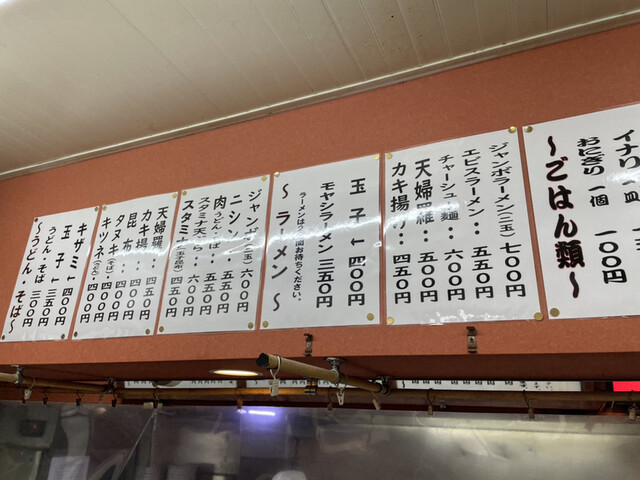 ～うどん・そば～
うどん・そば・三〇〇円
玉子 ← 四〇〇円
キザミ ← 四〇〇円
キツネ(うどん)・四〇〇円
タヌキ(そば)・四〇〇円
昆布・・四〇〇円
カキ揚げ・四五〇円
天婦羅・・五五〇円
スタミナ 五五〇円
スタミナ天ぷら・・六〇〇円
肉うどん・そば・・五五〇円
ニシン・・五五〇円
ジャンボ(二玉)六〇〇円
～ラーメン～
ラーメンは 間お待ちください。
モヤシラーメン 三五〇円
玉子 ← 四〇〇円
カキ揚げ・・四五〇円
天婦羅・・五五〇円
チャーシュー麺・・六〇〇円
エビスラーメン・・五五〇円
ジャンボラーメン(二玉)七〇〇円
～ごはん類～
おにぎり 一個 一〇〇円
イナリ 一皿